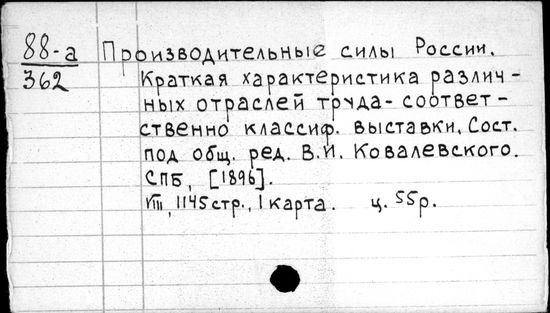 88-а Производительные силы России.
362 Краткая характеристика различ-
ных отраслей труда - соответ-
ственно классиф. выставки. Сост.
под общ. ред. В.И. Ковалевского.
СПБ, [1896].
VIII, 1145 стр., 1 карта. ц. 55р.